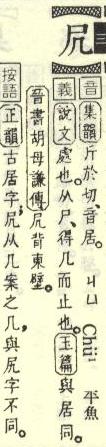 三
凥
音 集韻斤於切、音居。 ㄐㄩ Chü¹ 平魚
義 說文處也。从尸、得几而止也。玉篇與居同。
晉書胡母謙傳凥背東壁。
按語 正韻古居字、凥从几案之几、與尻字不同。